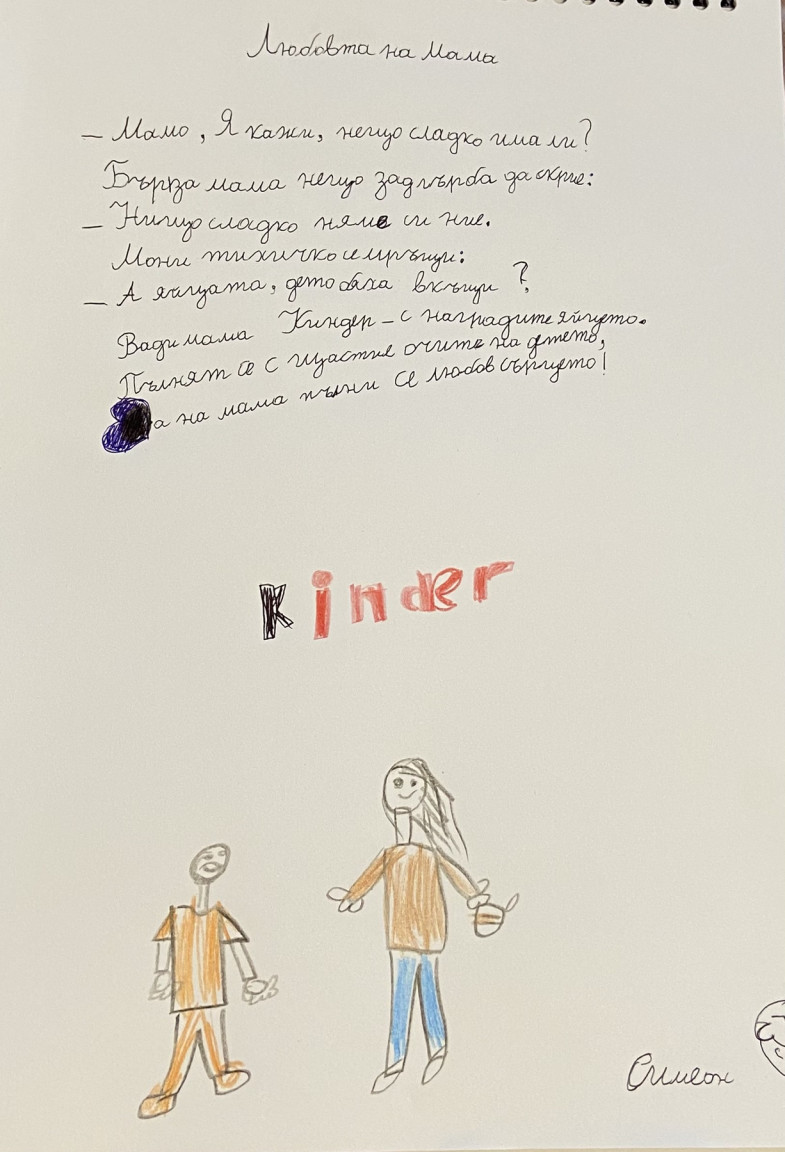 Любовта на мама
– Мамо, я кажи, нещо сладко има ли?
Бърза мама нещо задгърба да скрие:
– Нищо сладко няме си ние.
Мони тихичко се мръщи:
– А яйцата, дето бяха вкъщи?
Вади мама Киндер – с наградите яйцето.
Пълнят се с щастие очите на детето,
а на мама пълни се любов сърцето!
Kinder
Симеон